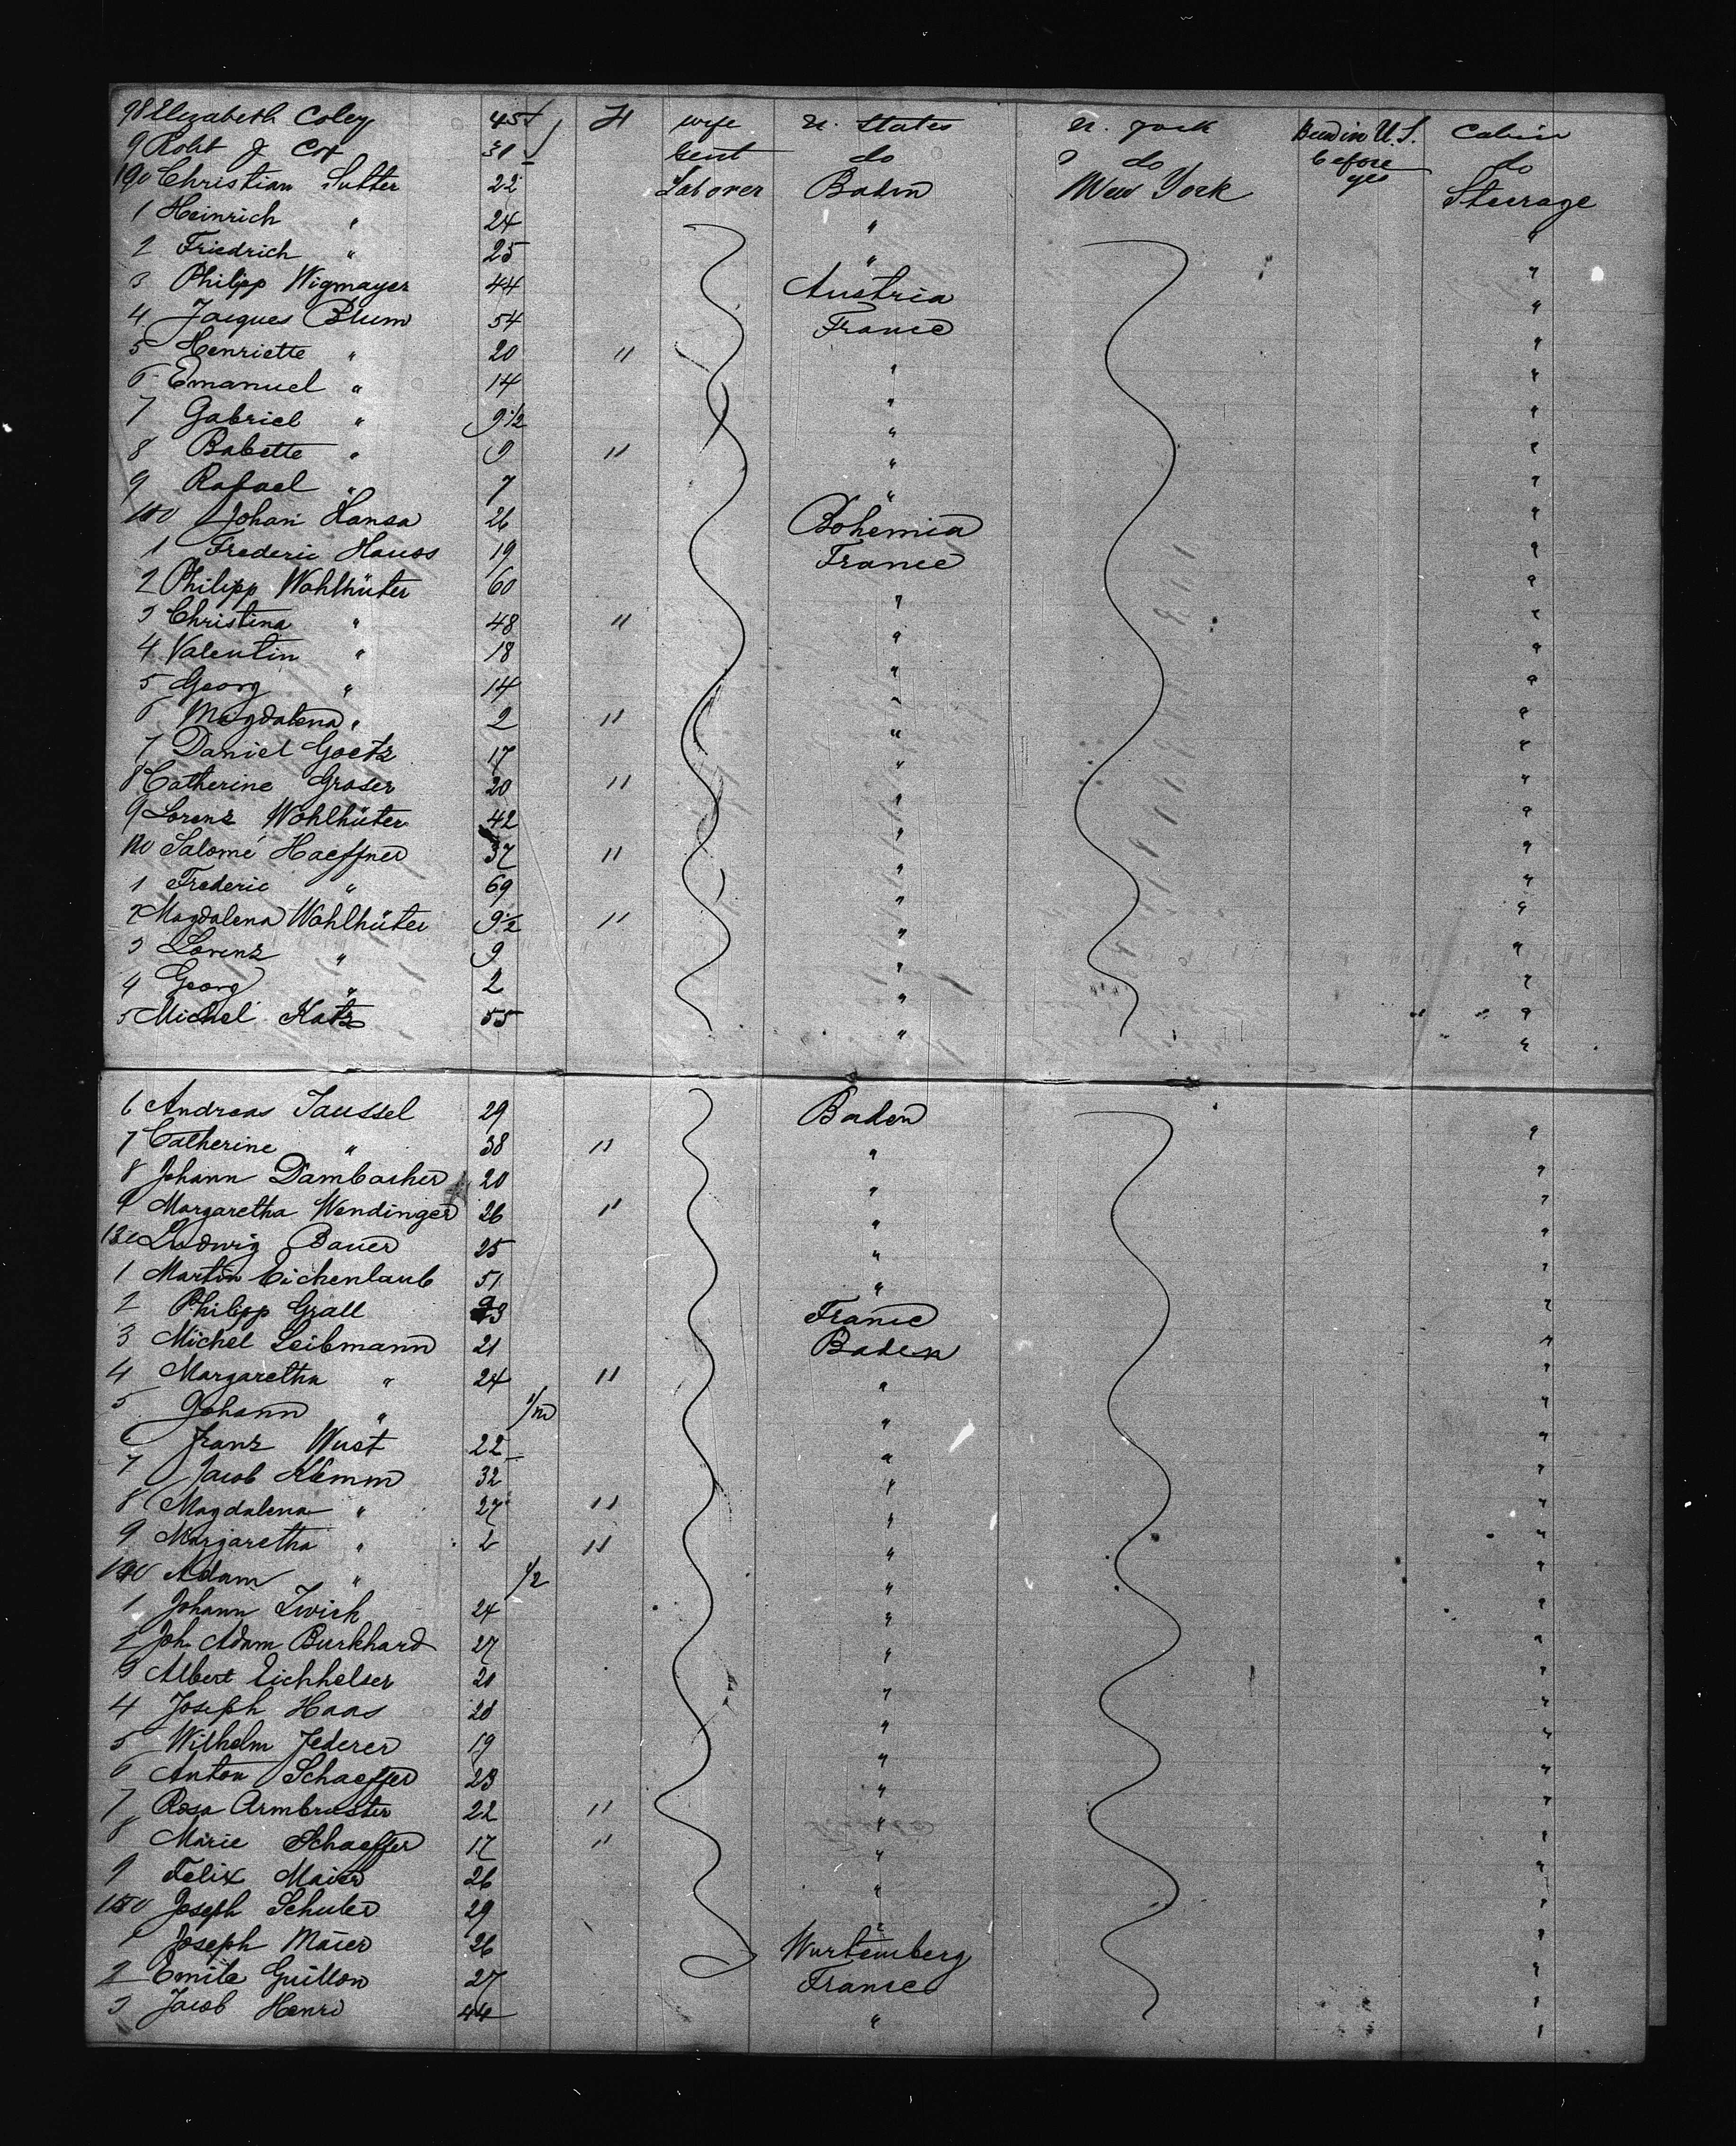 98 Elizabeth Coley 45 H wife U. States N. York Been in U.S. before Cabin
9 Robt J Cox 31 Gent do do yes do
190 Christian Sutter 22 Laborer Baden New York Steerage
1 Heinrich " 24 " "
2 Friedrich " 25 " "
3 Philipp Wigmayer 44 Austria "
4 Jacques Blum 54 France "
5 Henriette " 20 " " "
6 Emanuel " 14 " "
7 Gabriel " 9 1/2 " "
8 Babette " 9 " " "
9 Rafael " 7 " "
100 Johan Hansa 26 Bohemia "
1 Frederic Hauss 19 France "
2 Philipp Wohlhüter 60 " "
3 Christina " 48 " " "
4 Valentin " 18 " "
5 Georg " 14 " "
6 Magdalena " 2 " " "
7 Daniel Goetz 17 " "
8 Catherine Graser 20 " " "
9 Lorenz Wohlhüter 42 " "
120 Salomé Haeffner 37 " " "
1 Frederic " 69 " "
2 Magdalena Wohlhüter 9 1/2 " " "
3 Lorenz " 9 " "
4 Georg " 2 " "
5 Michel Katz 55 " "
6 Andreas Taussel 29 Baden "
7 Catherine " 38 " " "
8 Johann Dambacher 20 " "
9 Margaretha Wendinger 26 " " "
130 Ludwig Bauer 25 " "
1 Martin Eichenlaub 51 " "
2 Philipp Grall 23 France "
3 Michel Leibmann 21 Baden "
4 Margaretha " 24 " " "
5 Johann " 1/m " "
6 Franz Wust 22 " "
7 Jacob Klemm 32 " "
8 Magdalena " 27 " " "
9 Margaretha " 2 " " "
140 Adam " 1/2 " "
1 Johann Zwick 24 " "
2 Joh. Adam Burkhard 27 " "
3 Albert Eichhelser 20 " "
4 Joseph Haas 28 " "
5 Wilhelm Federer 19 " "
6 Anton Schaeffer 23 " "
7 Rosa Armbruster 22 " " "
8 Marie Schaeffer 17 " " "
9 Felix Maier 26 " "
150 Joseph Schuler 29 " "
1 Joseph Maier 26 Wurtemberg "
2 Emile Guillon 27 France "
3 Jacob Henri 44 " "